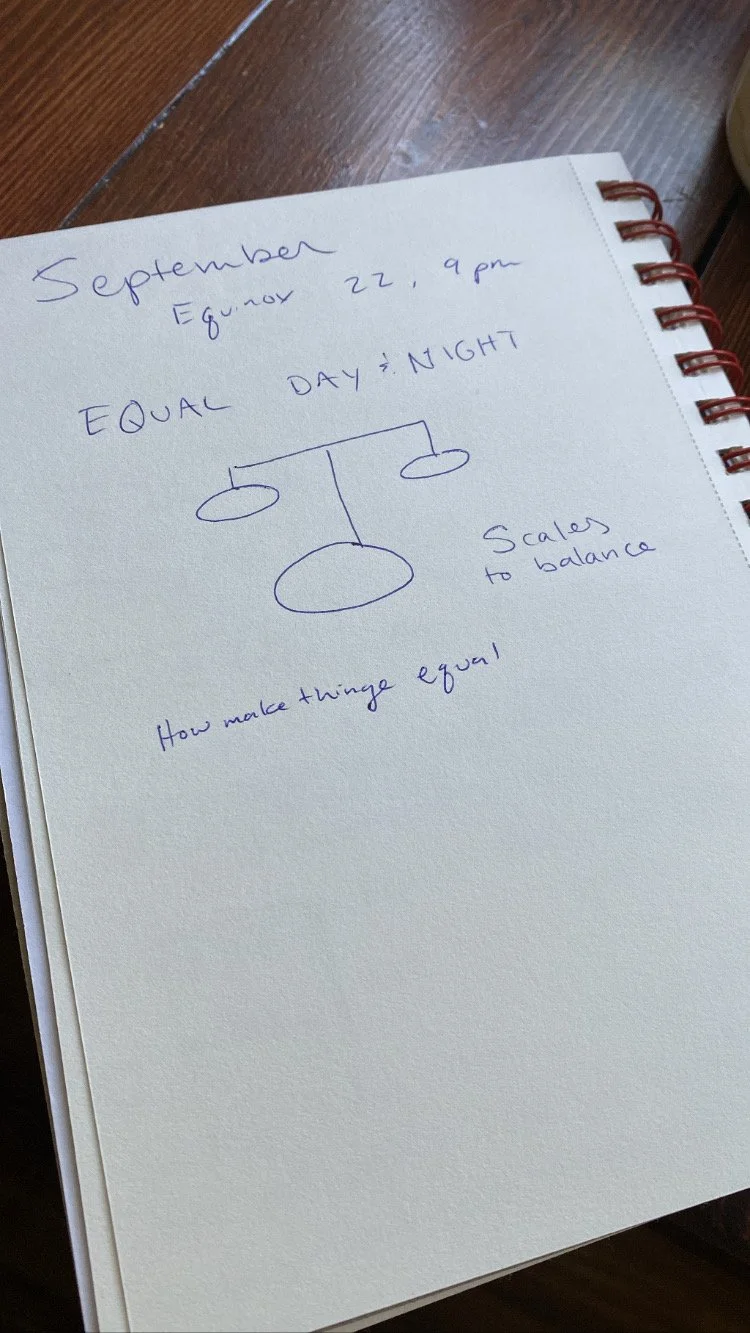 September
Equinox 22, 9 pm
EQUAL DAY & NIGHT
Scales
to balance
How make things equal